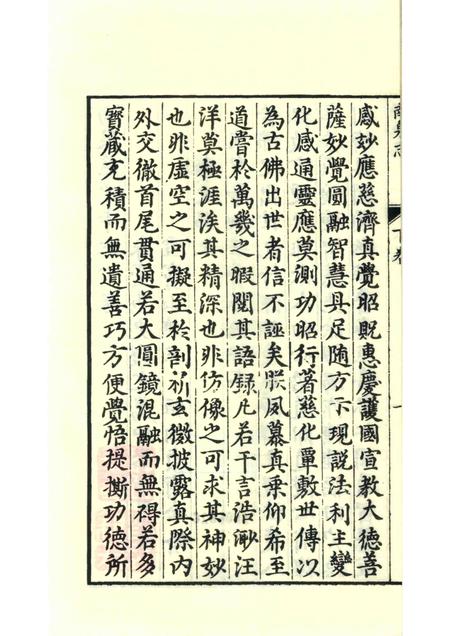 下卷
感妙應慈濟真覺昭貺惠慶護國宣教大德善
薩妙覺圓融智慧具足随方示現説法利主變
化感通靈應莫測功昭行著慈化單敷世傳以
為古佛出世者信不誣矣朕夙慕真乗仰希至
道嘗於萬幾之暇閱其語録凡若干言浩渺汪
洋莫極涯涘其精深也非仿像之可求其神妙
也非虛空之可擬至於剖析玄微披露真際内
外交徹首尾貫通若大圓鏡混融而無碍若多
寳蔵充積而無遺善巧方便覺悟提撕功德所